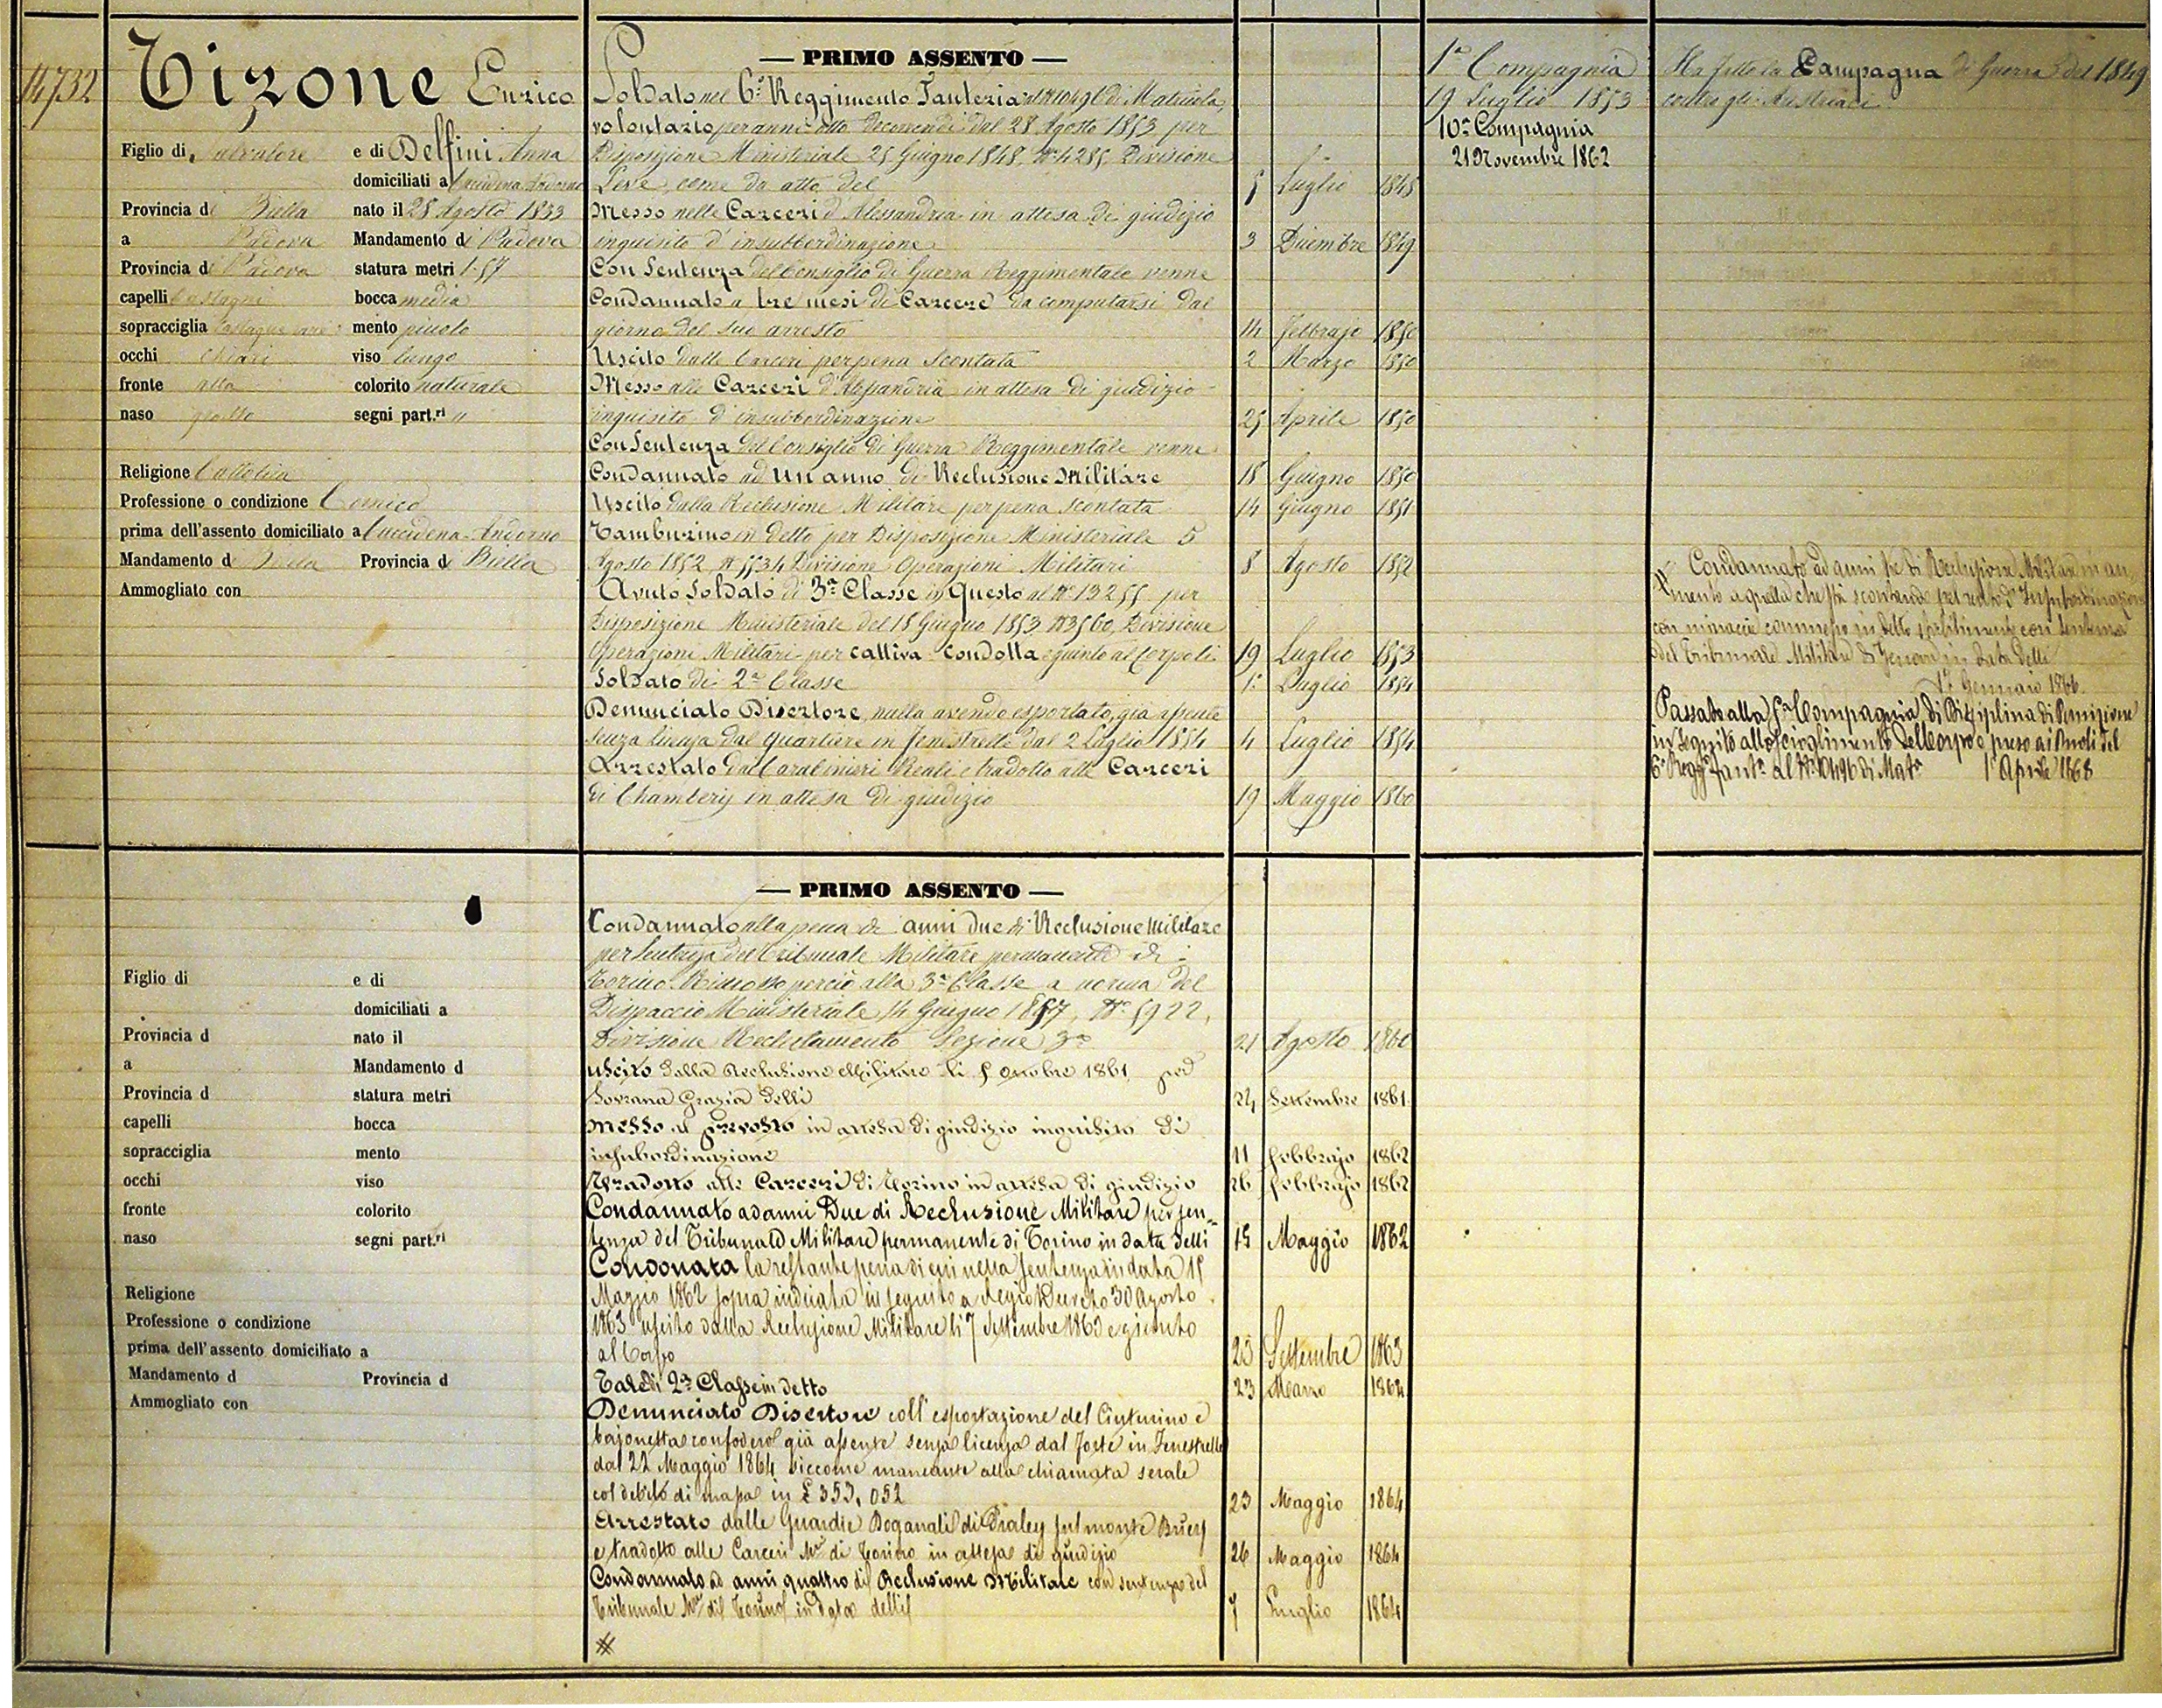 14732
Tizone Enrico
Figlio di Salvatore e di Delfini Anna
domiciliati a Andorno
Provincia di Biella nato il 28 Agosto 1833
a Padova Mandamento di Padova
Provincia di Padova statura metri 1.57
capelli castagni bocca media
sopracciglia mento piccolo
occhi chiari viso lungo
fronte alta colorito naturale
naso segni part.ri "
Religione Cattolica
Professione o condizione Comico
prima dell'assento domiciliato a Andorno
Mandamento di Provincia di Biella
Ammogliato con
— PRIMO ASSENTO —
Soldato nel 6° Reggimento Fanteria al N° 10496 di Matricola,
volontario per anni otto decorrendi dal 28 Agosto 1853 per
Disposizione Ministeriale 25 Giugno 1848, N° 4285, Divisione
Leve, come da atto del 5 Luglio 1848
Messo nelle Carceri d'Alessandria in attesa di giudizio
inquisito d'insubbordinazione 3 Dicembre 1849
Con Sentenza del Consiglio di Guerra Reggimentale venne
Condannato a tre mesi di Carcere da computarsi dal
giorno del suo arresto 14 Febbrajo 1850
Uscito dalle Carceri per pena scontata 2 Marzo 1850
Messo alle Carceri d'Alessandria in attesa di giudizio
inquisito d'insubbordinazione 25 Aprile 1850
Con Sentenza del Consiglio di Guerra Reggimentale venne
Condannato ad un anno di Reclusione Militare 18 Giugno 1850
Uscito dalla Reclusione Militare per pena scontata 14 Giugno 1851
Tamburino in detto per Disposizione Ministeriale 5
Agosto 1852 N° 5534 Divisione Operazioni Militari 8 Agosto 1852
Avuto Soldato di 3ª Classe in Questo al N° 13255 per
Disposizione Ministeriale del 18 Giugno 1853 N° 3560, Divisione
Operazioni Militari per cattiva condotta e giunto al Corpo li 19 Luglio 1853
Soldato di 2ª Classe 1° Luglio 1854
Denunciato Disertore, nulla avendo esportato, già assente
senza licenza dal quartiere in Fenestrelle dal 2 Luglio 1854 4 Luglio 1854
Arrestato dai Carabinieri Reali e tradotto alle Carceri
di Chambery in attesa di giudizio 19 Maggio 1860
1ª Compagnia
19 Luglio 1853
10ª Compagnia
21 Novembre 1862
Ha fatto la Campagna di Guerra del 1849
contro gli Austriaci
Condannato ad anni tre di Reclusione Militare in au-
mento a quella che sta scontando pel reato d'Insubordinazione
con minaccie commesso in detto stabilimento con sentenza
del Tribunale Militare di Genova in data delli
1° Gennaio 1866
Passato alla 1ª Compagnia di Disciplina di Punizione
in seguito allo scioglimento del Corpo e preso ai Ruoli del
6° Regg.to Fant.a al N° 10496 di Mat.a 1° Aprile 1868
— PRIMO ASSENTO —
Condannato alla pena di anni due di Reclusione Militare
per Sentenza del Tribunale Militare permanente di
Torino. Rimosso perciò alla 3ª Classe a norma del
Dispaccio Ministeriale 14 Giugno 1857, N° 5922,
Divisione Reclutamento Sezione 3ª 21 Agosto 1860
Uscito dalla Reclusione Militare li 5 Ottobre 1861 per
Sovrana Grazia delli 24 Settembre 1861
Messo al prevosto in attesa di giudizio inquisito di
insubordinazione 11 Febbrajo 1862
Tradotto alle Carceri di Torino in attesa di giudizio 26 Febbrajo 1862
Condannato ad anni Due di Reclusione Militare per sen-
tenza del Tribunale Militare permanente di Torino in data delli 15 Maggio 1862
Condonata la restante pena di cui nella sentenza in data 15
Maggio 1862 sopra indicata in seguito a Regio Decreto 30 Agosto
1863 uscito dalla Reclusione Militare li 7 Settembre 1863 e giunto
al Corpo 23 Settembre 1863
Tale di 2ª Classe in detto 23 Marzo 1864
Denunciato Disertore coll'esportazione del Cinturino e
bajonetta con fodero già assente senza licenza dal Forte in Fenestrelle
dal 22 Maggio 1864 siccome mancante alla chiamata serale
col debito di massa in £ 353,052 23 Maggio 1864
Arrestato dalle Guardie Doganali di sul monte
e tradotto alle Carceri M.ri di Torino in attesa di giudizio 26 Maggio 1864
Condannato ad anni quattro di Reclusione Militare con sentenza del
Tribunale M.re di Torino in data delli 7 Luglio 1864
Figlio di e di
domiciliati a
Provincia d nato il
a Mandamento d
Provincia d statura metri
capelli bocca
sopracciglia mento
occhi viso
fronte colorito
naso segni part.ri
Religione
Professione o condizione
prima dell'assento domiciliato a
Mandamento d Provincia d
Ammogliato con